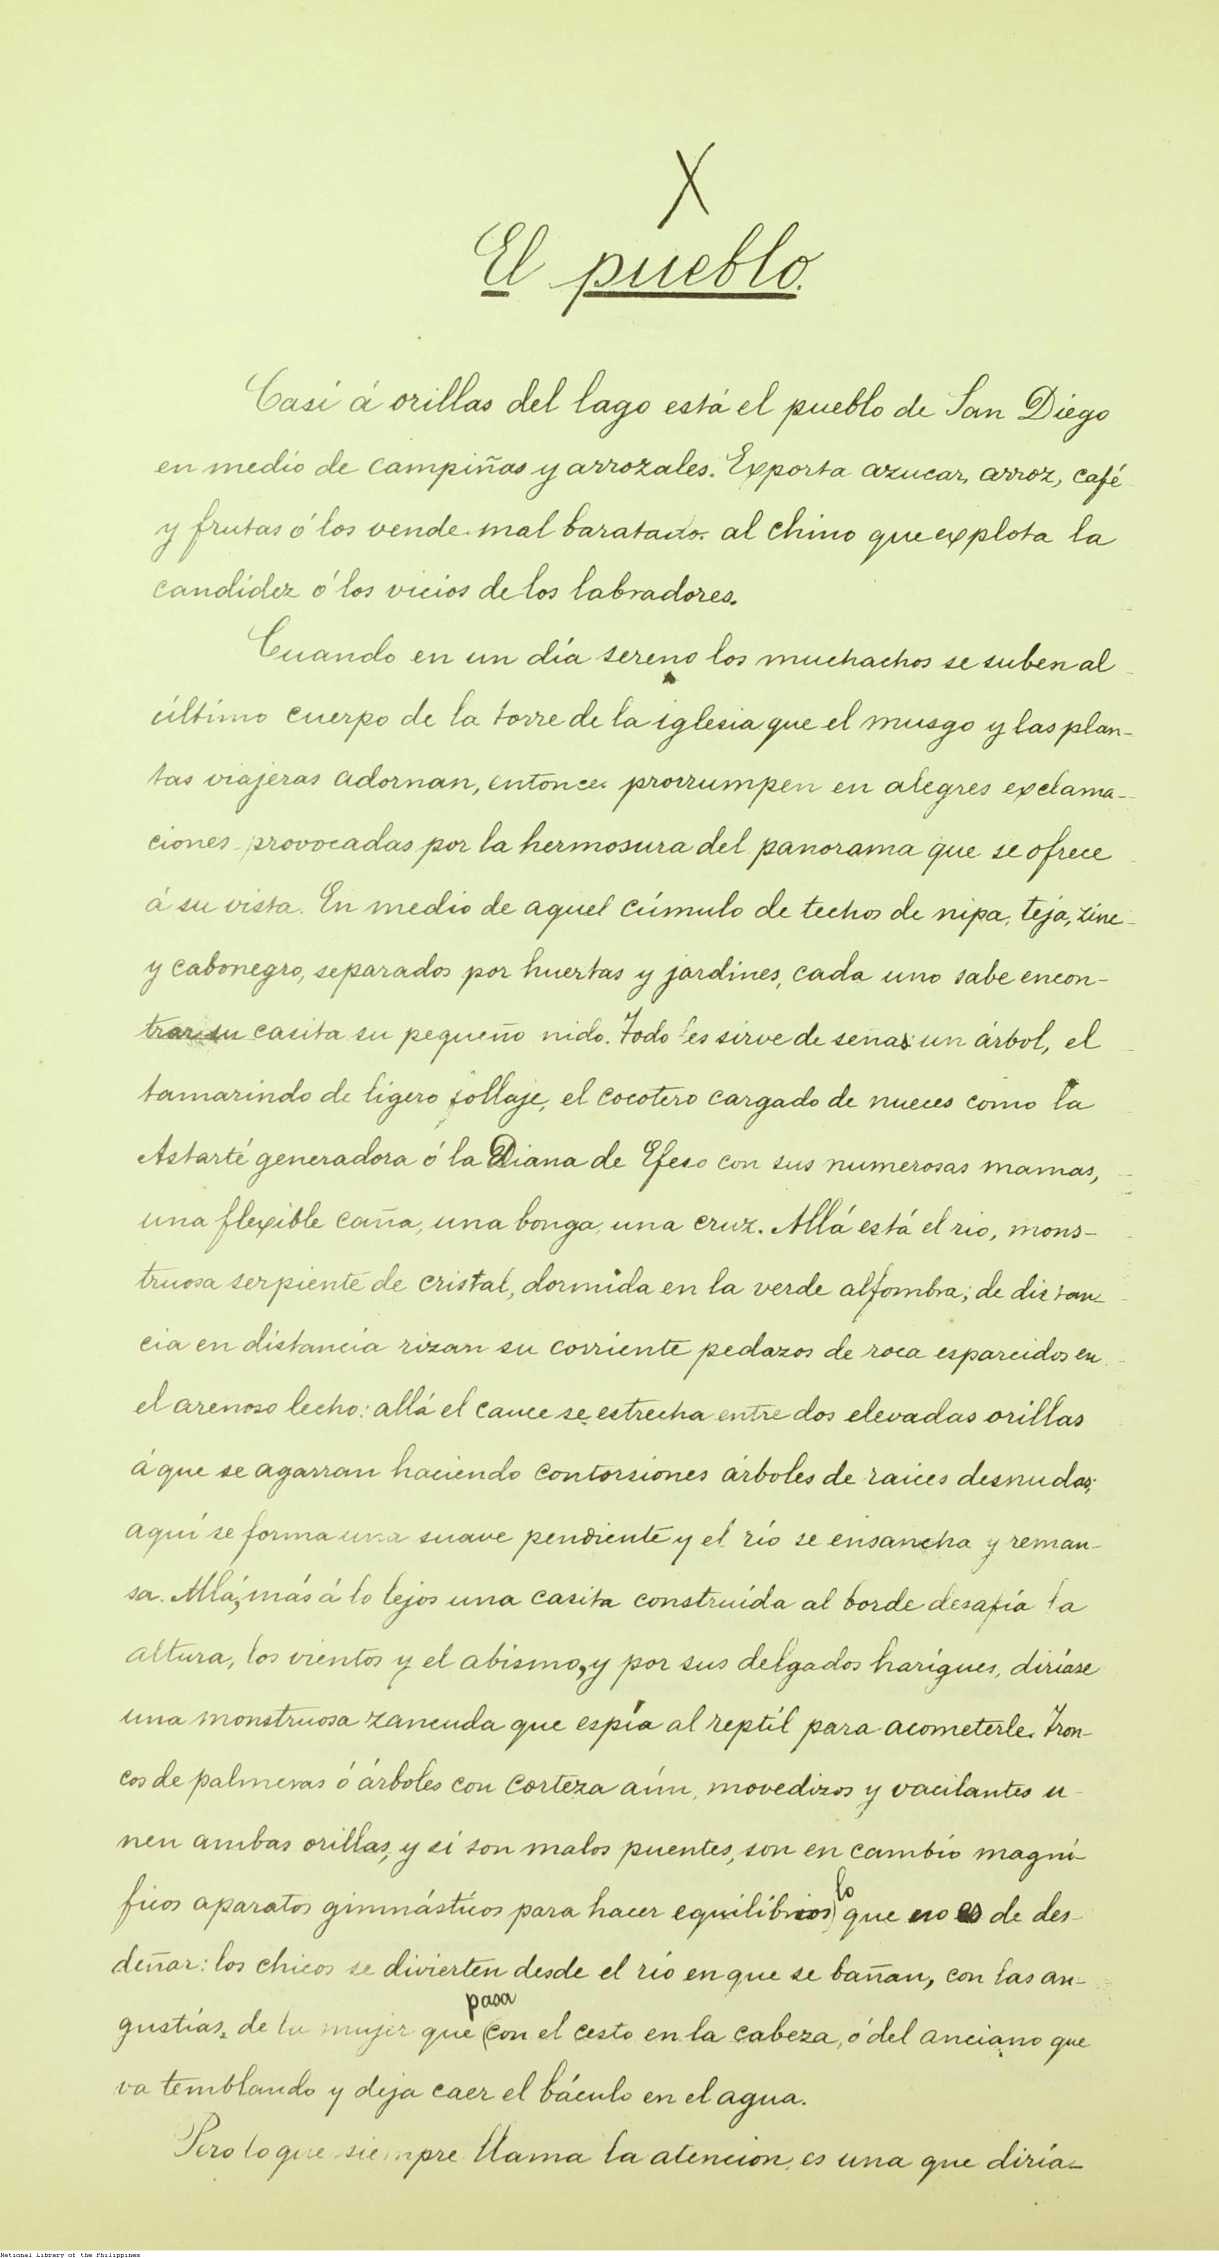 X
El pueblo.
Casi á orillas del lago está el pueblo de San Diego
en medio de campiñas y arrozales. Exporta azucar, arroz, café
y frutas ó los vende mal baratado al chino que explota la
candidez ó los vicios de los labradores.
Cuando en un día sereno los muchachos se suben al
último cuerpo de la torre de la iglesia que el musgo y las plan-
tas viajeras adornan, entonces prorrumpen en alegres exclama-
ciones provocadas por la hermosura del panorama que se ofrece
á su vista. En medio de aquel cúmulo de techos de nipa, teja, zinc
y cabonegro, separados por huertas y jardines, cada uno sabe encon-
trar su casita su pequeño nido. Todo les sirve de señas: un árbol, el
tamarindo de ligero follaje, el cocotero cargado de nueces como la
Astarté generadora ó la Diana de Efeso con sus numerosas mamas,
una flexible caña, una bonga, una cruz. Allá está el rio, mons-
truosa serpiente de cristal, dormida en la verde alfombra; de distan-
cia en distancia rizan su corriente pedazos de roca esparcidos en
el arenoso lecho: allá el cauce se estrecha entre dos elevadas orillas
á que se agarran haciendo contorsiones árboles de raices desnudas;
aquí se forma una suave pendiente y el río se ensancha y reman-
sa. Allá, más á lo lejos una casita construída al borde desafía la
altura, los vientos y el abismo, y por sus delgados harigues, diríase
una monstruosa zancuda que espía al reptil para acometerle. Tron-
cos de palmeras ó árboles con corteza aún, movedizos y vacilantes u-
nen ambas orillas, y si son malos puentes, son en cambio magní-
ficos aparatos gimnásticos para hacer equilibrios, lo que no es de des-
deñar: los chicos se divierten desde el río en que se bañan, con las an-
gustias, de la mujer que pasa con el cesto en la cabeza, ó del anciano que
va temblando y deja caer el báculo en el agua.
Pero lo que siempre llama la atencion, es una que diría-
National Library of the Philippines